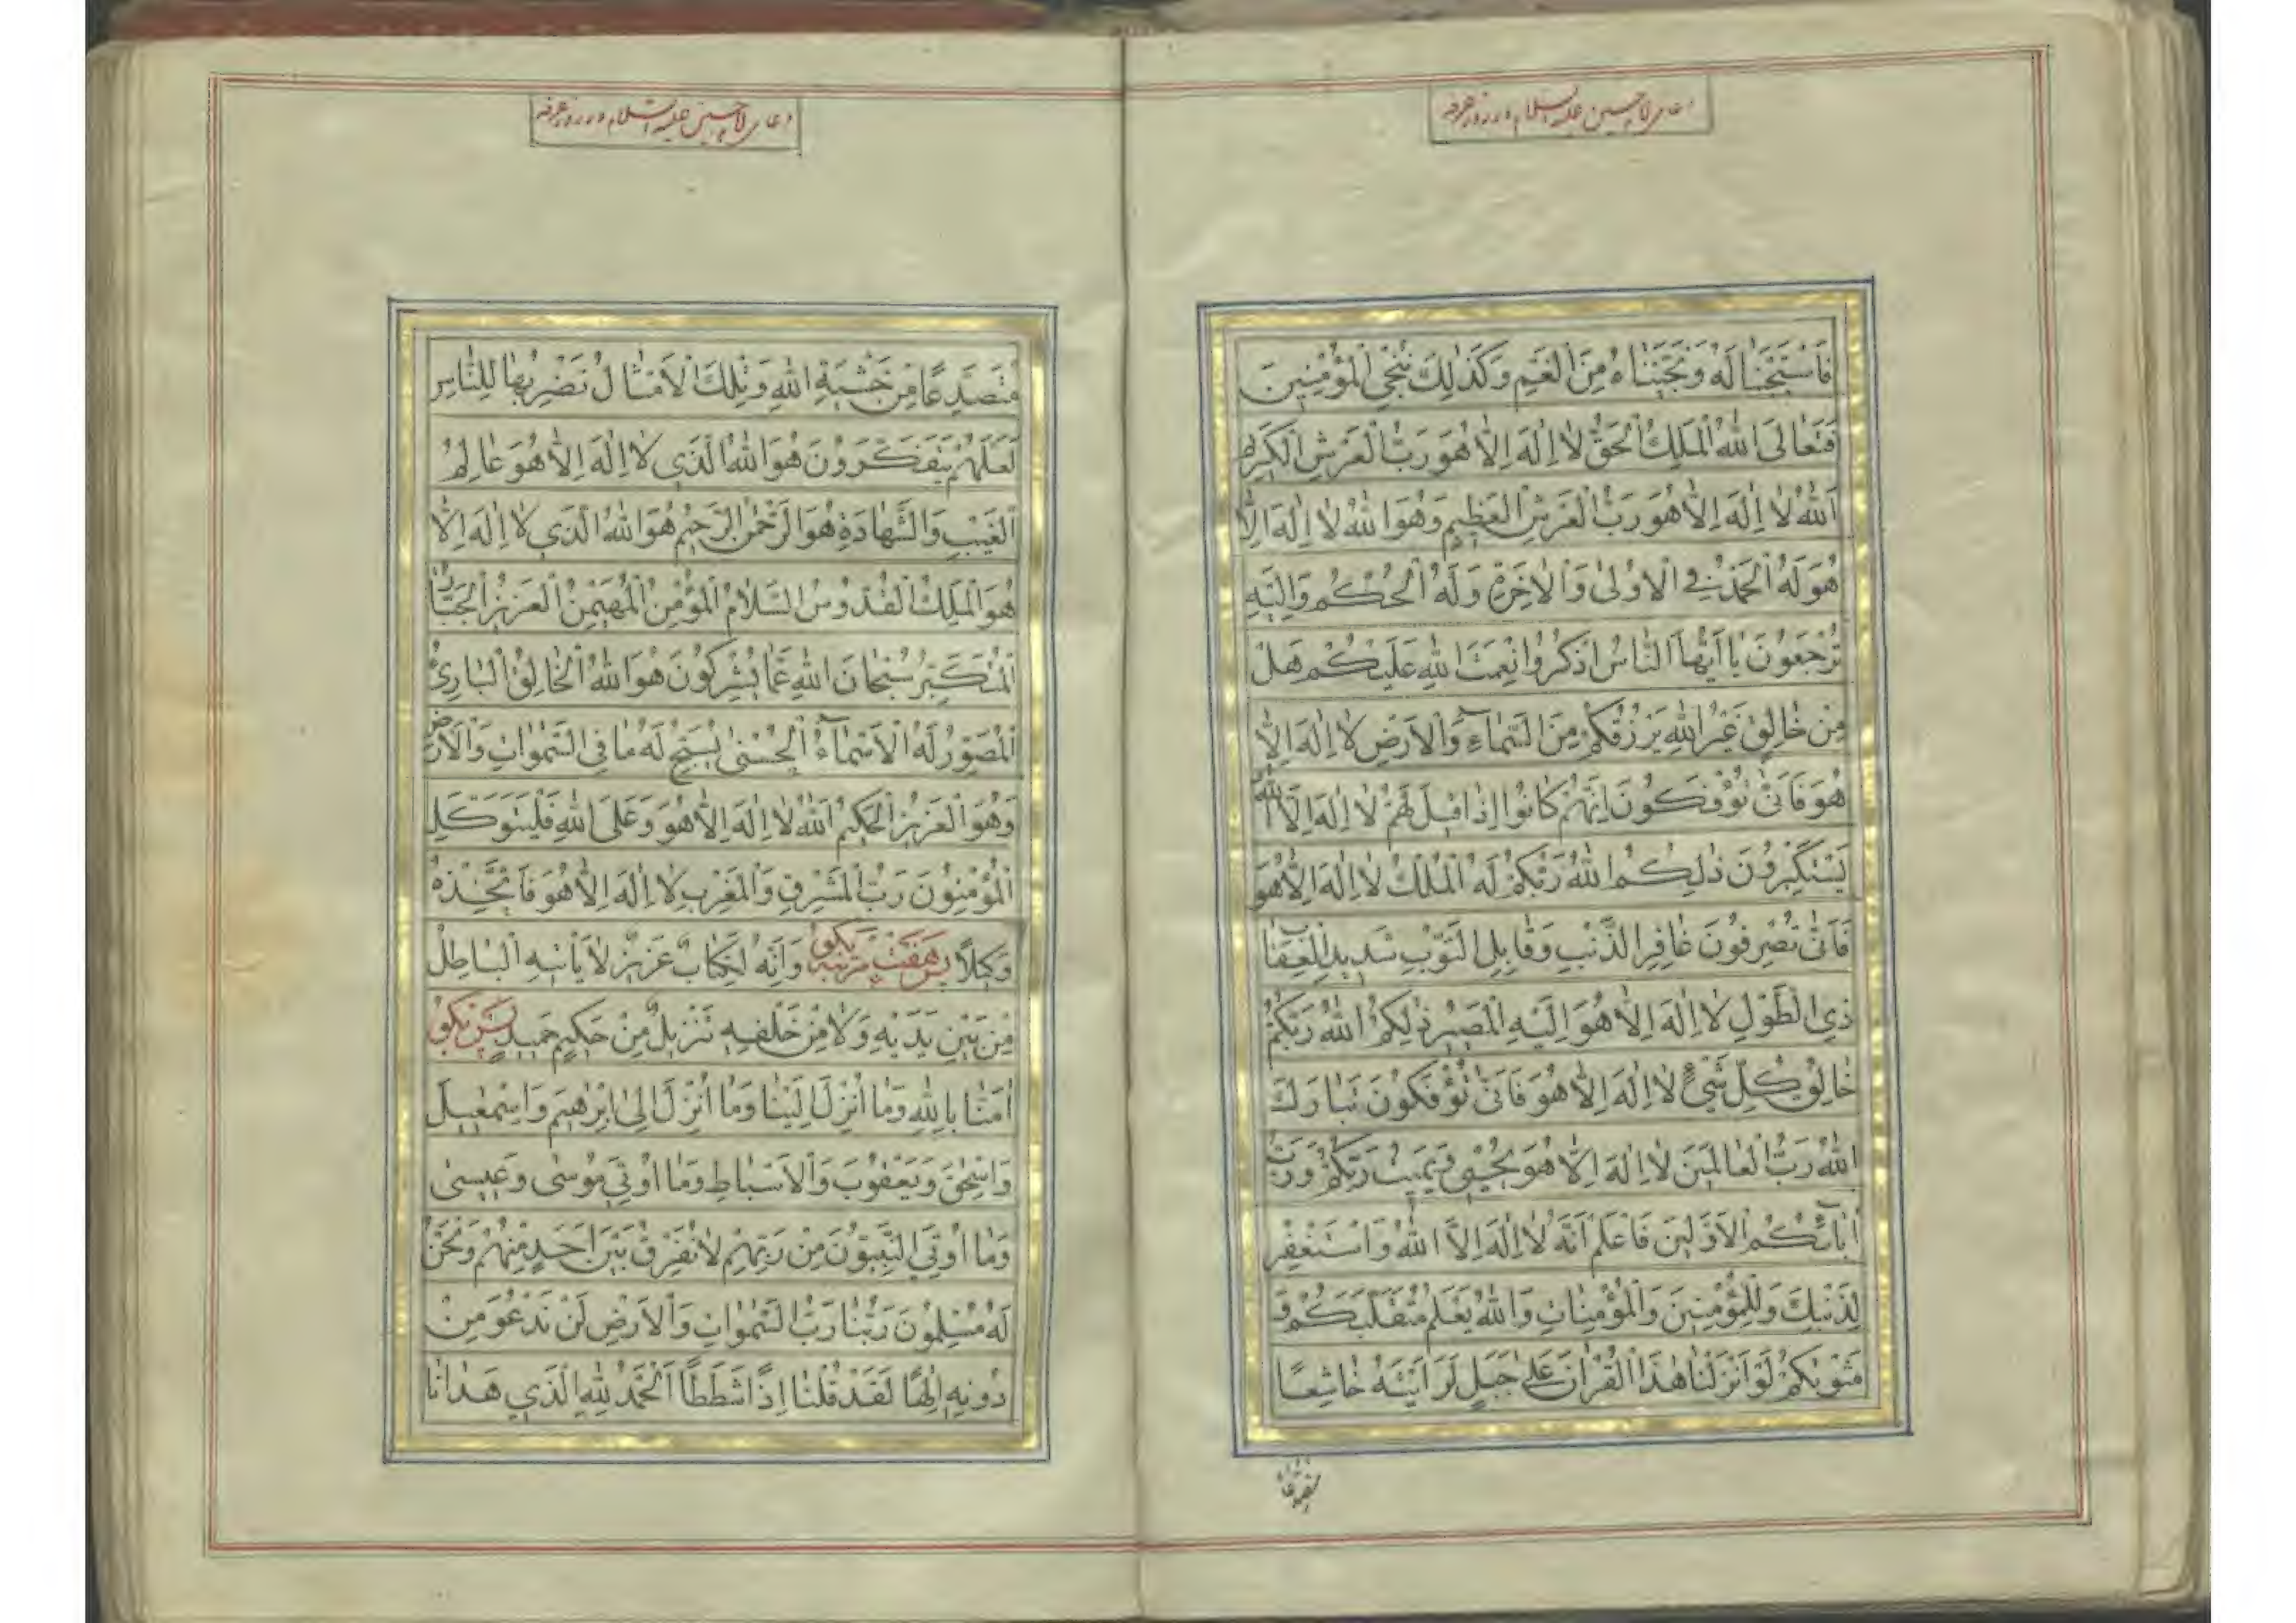 دعای امام حسین علیه السلام در روز عرفه
فَاسْتَجَبْنَا لَهُ وَنَجَّيْنَاهُ مِنَ الْغَمِّ وَكَذٰلِكَ نُنْجِي الْمُؤْمِنِينَ
فَتَعَالَى اللّٰهُ الْمَلِكُ الْحَقُّ لَا اِلٰهَ اِلَّا هُوَ رَبُّ الْعَرْشِ الْكَرِيمِ
اَللّٰهُ لَا اِلٰهَ اِلَّا هُوَ رَبُّ الْعَرْشِ الْعَظِيمِ وَهُوَ اللّٰهُ لَا اِلٰهَ اِلَّا
هُوَ لَهُ الْحَمْدُ فِي الْاُولٰى وَالْاٰخِرَةِ وَلَهُ الْحُكْمُ وَاِلَيْهِ
تُرْجَعُونَ يَا اَيُّهَا النَّاسُ اذْكُرُوا نِعْمَتَ اللّٰهِ عَلَيْكُمْ هَلْ
مِنْ خَالِقٍ غَيْرُ اللّٰهِ يَرْزُقُكُمْ مِنَ السَّمَاءِ وَالْاَرْضِ لَا اِلٰهَ اِلَّا
هُوَ فَاَنّٰى تُؤْفَكُونَ اِنَّهُمْ كَانُوا اِذَا قِيلَ لَهُمْ لَا اِلٰهَ اِلَّا اللّٰهُ
يَسْتَكْبِرُونَ ذٰلِكُمُ اللّٰهُ رَبُّكُمْ لَهُ الْمُلْكُ لَا اِلٰهَ اِلَّا هُوَ
فَاَنّٰى تُصْرَفُونَ غَافِرِ الذَّنْبِ وَقَابِلِ التَّوْبِ شَدِيدِ الْعِقَابِ
ذِي الطَّوْلِ لَا اِلٰهَ اِلَّا هُوَ اِلَيْهِ الْمَصِيرُ ذٰلِكُمُ اللّٰهُ رَبُّكُمْ
خَالِقُ كُلِّ شَيْءٍ لَا اِلٰهَ اِلَّا هُوَ فَاَنّٰى تُؤْفَكُونَ تَبَارَكَ
اللّٰهُ رَبُّ الْعَالَمِينَ لَا اِلٰهَ اِلَّا هُوَ يُحْيِي وَيُمِيتُ رَبُّكُمْ وَرَبُّ
اٰبَائِكُمُ الْاَوَّلِينَ فَاعْلَمْ اَنَّهُ لَا اِلٰهَ اِلَّا اللّٰهُ وَاسْتَغْفِرْ
لِذَنْبِكَ وَلِلْمُؤْمِنِينَ وَالْمُؤْمِنَاتِ وَاللّٰهُ يَعْلَمُ مُتَقَلَّبَكُمْ وَ
مَثْوٰيكُمْ لَوْ اَنْزَلْنَا هٰذَا الْقُرْاٰنَ عَلٰى جَبَلٍ لَرَاَيْتَهُ خَاشِعًا
دعای امام حسین علیه السلام در روز عرفه
مُتَصَدِّعًا مِنْ خَشْيَةِ اللّٰهِ وَتِلْكَ الْاَمْثَالُ نَضْرِبُهَا لِلنَّاسِ
لَعَلَّهُمْ يَتَفَكَّرُونَ هُوَ اللّٰهُ الَّذِي لَا اِلٰهَ اِلَّا هُوَ عَالِمُ
الْغَيْبِ وَالشَّهَادَةِ هُوَ الرَّحْمٰنُ الرَّحِيمُ هُوَ اللّٰهُ الَّذِي لَا اِلٰهَ اِلَّا
هُوَ الْمَلِكُ الْقُدُّوسُ السَّلَامُ الْمُؤْمِنُ الْمُهَيْمِنُ الْعَزِيزُ الْجَبَّارُ
الْمُتَكَبِّرُ سُبْحَانَ اللّٰهِ عَمَّا يُشْرِكُونَ هُوَ اللّٰهُ الْخَالِقُ الْبَارِئُ
الْمُصَوِّرُ لَهُ الْاَسْمَاءُ الْحُسْنٰى يُسَبِّحُ لَهُ مَا فِي السَّمٰوَاتِ وَالْاَرْضِ
وَهُوَ الْعَزِيزُ الْحَكِيمُ اَللّٰهُ لَا اِلٰهَ اِلَّا هُوَ وَعَلَى اللّٰهِ فَلْيَتَوَكَّلِ
الْمُؤْمِنُونَ رَبُّ الْمَشْرِقِ وَالْمَغْرِبِ لَا اِلٰهَ اِلَّا هُوَ فَاتَّخِذْهُ
وَكِيلًا پس هفت مرتبه بگو وَاِنَّهُ لَكِتَابٌ عَزِيزٌ لَا يَاْتِيهِ الْبَاطِلُ
مِنْ بَيْنِ يَدَيْهِ وَلَا مِنْ خَلْفِهِ تَنْزِيلٌ مِنْ حَكِيمٍ حَمِيدٍ پس بگو
اٰمَنَّا بِاللّٰهِ وَمَا اُنْزِلَ اِلَيْنَا وَمَا اُنْزِلَ اِلٰى اِبْرٰهِيمَ وَاِسْمٰعِيلَ
وَاِسْحٰقَ وَيَعْقُوبَ وَالْاَسْبَاطِ وَمَا اُوتِيَ مُوسٰى وَعِيسٰى
وَمَا اُوتِيَ النَّبِيُّونَ مِنْ رَبِّهِمْ لَا نُفَرِّقُ بَيْنَ اَحَدٍ مِنْهُمْ وَنَحْنُ
لَهُ مُسْلِمُونَ رَبُّنَا رَبُّ السَّمٰوَاتِ وَالْاَرْضِ لَنْ نَدْعُوَ مِنْ
دُونِهِ اِلٰهًا لَقَدْ قُلْنَا اِذًا شَطَطًا اَلْحَمْدُ لِلّٰهِ الَّذِي هَدَانَا